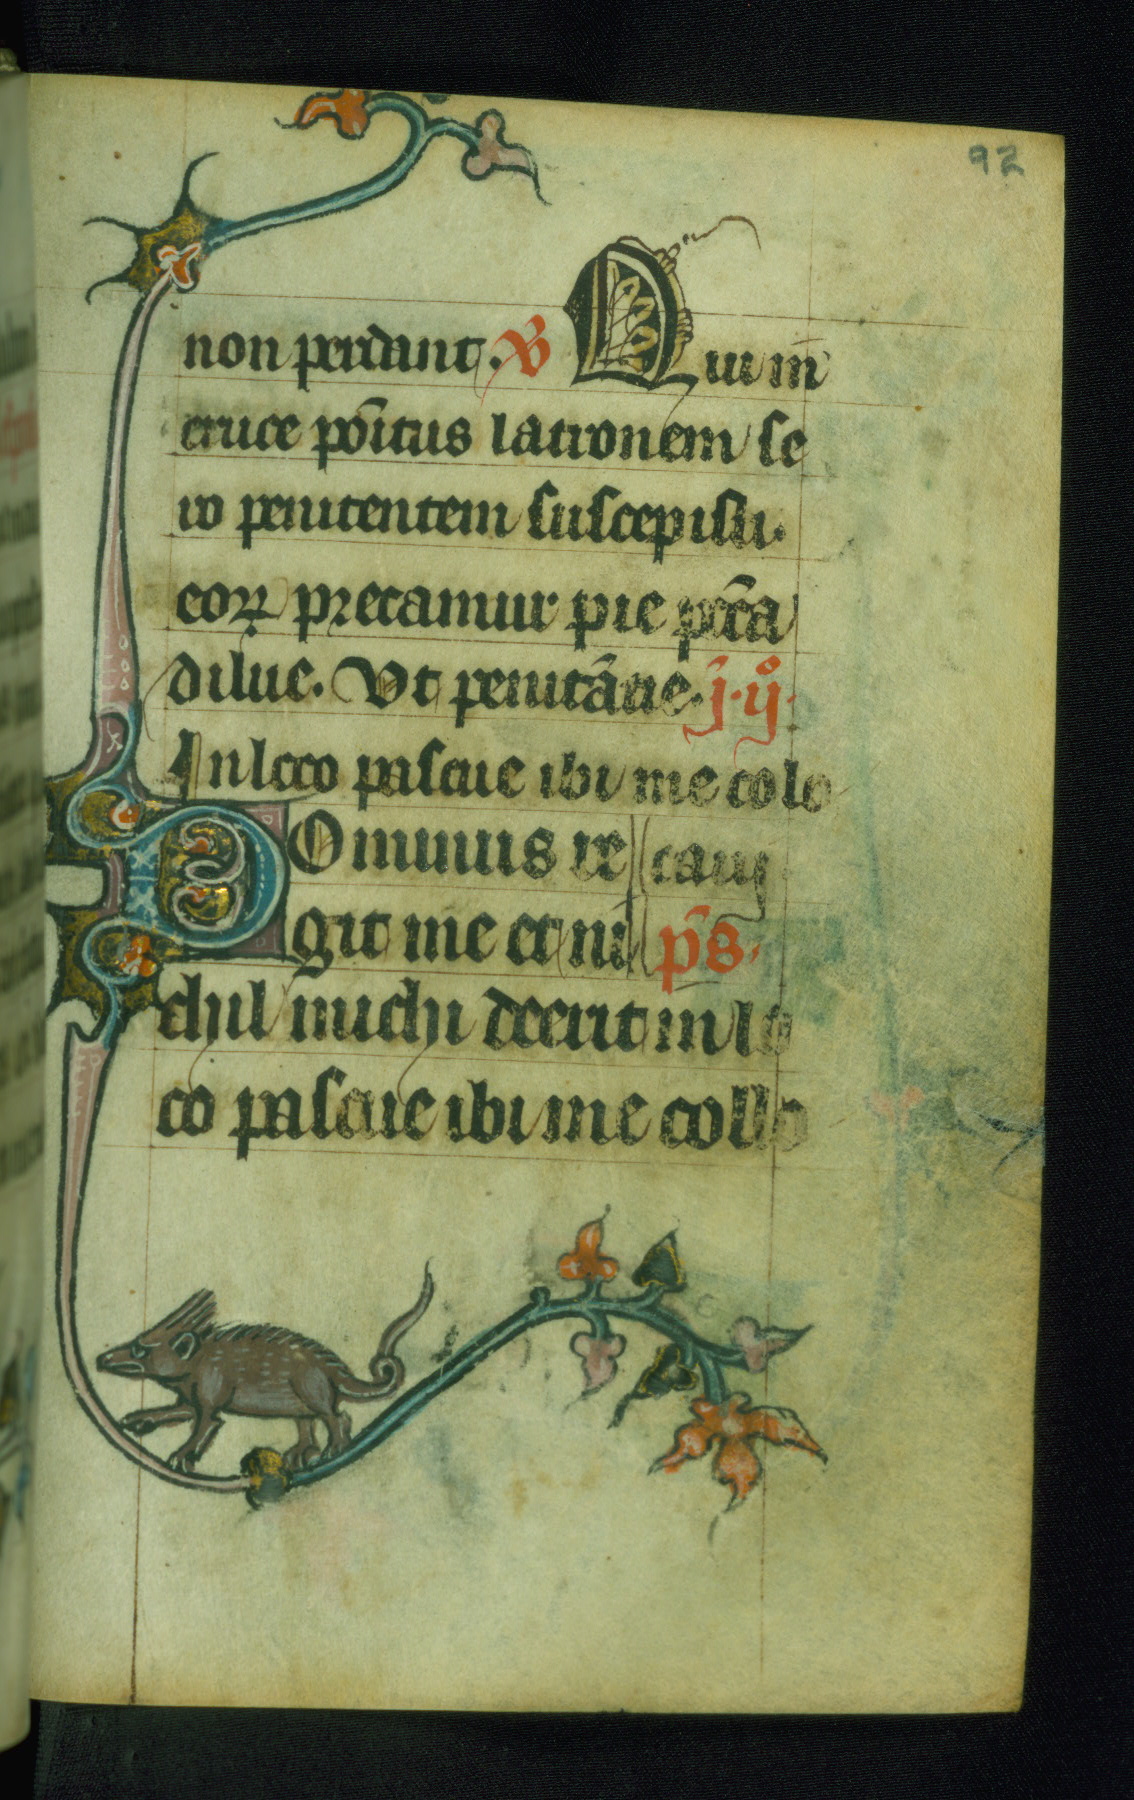 92
non perdant. V Qui in
cruce po͞itus latronem se
ro penitentem suscepisti.
eoꝝ precamur pie pc̄cā
dilue. Vt penitāne. j. ij.
In loco pascue ibi me colo
Dominus re cauit
git me et ni p̄s.
chil michi deerit in lo
co pascue ibi me collo